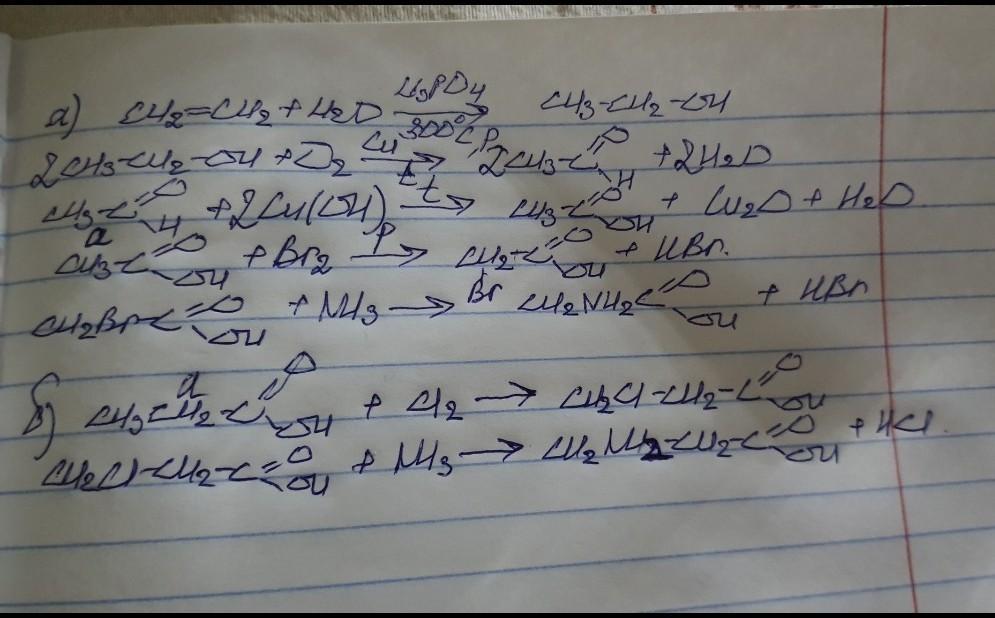 а) CH2=CH2 + H2O H3PO4 → 300°C, P CH3-CH2-OH
2CH3-CH2-OH + O2 Cu → t 2CH3-C=O H + 2H2O
CH3-C=O H + 2Cu(OH)2 t → CH3-C=O OH + Cu2O + H2O
a CH3-C=O OH + Br2 P → CH2-C=O OH Br + HBr.
CH2Br-C=O OH + NH3 → CH2NH2C=O OH + HBr
б) CH3CH2-C=O a OH + Cl2 → CH2Cl-CH2-C=O OH
CH2Cl-CH2-C=O OH + NH3 → CH2NH2-CH2-C=O OH + HCl.